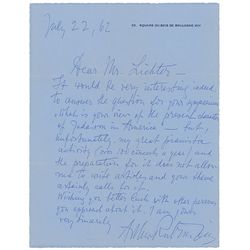 22, SQUARE DU BOIS DE BOULOGNE XVI
July 22, 62
Dear Mr. Lichter –
It would be very interesting indeed
to answer the question for your symposium
"what is your view of the present character
of Judaism in America" – but,
unfortunately, my great pianistic
activity (over 100 concerts a year) and
the preparation for it does not allow
me to write articles and your theme
certainly calls for it.
Wishing you better luck with other persons
you approach about it I am, yours
very sincerely
Arthur Rubinstein